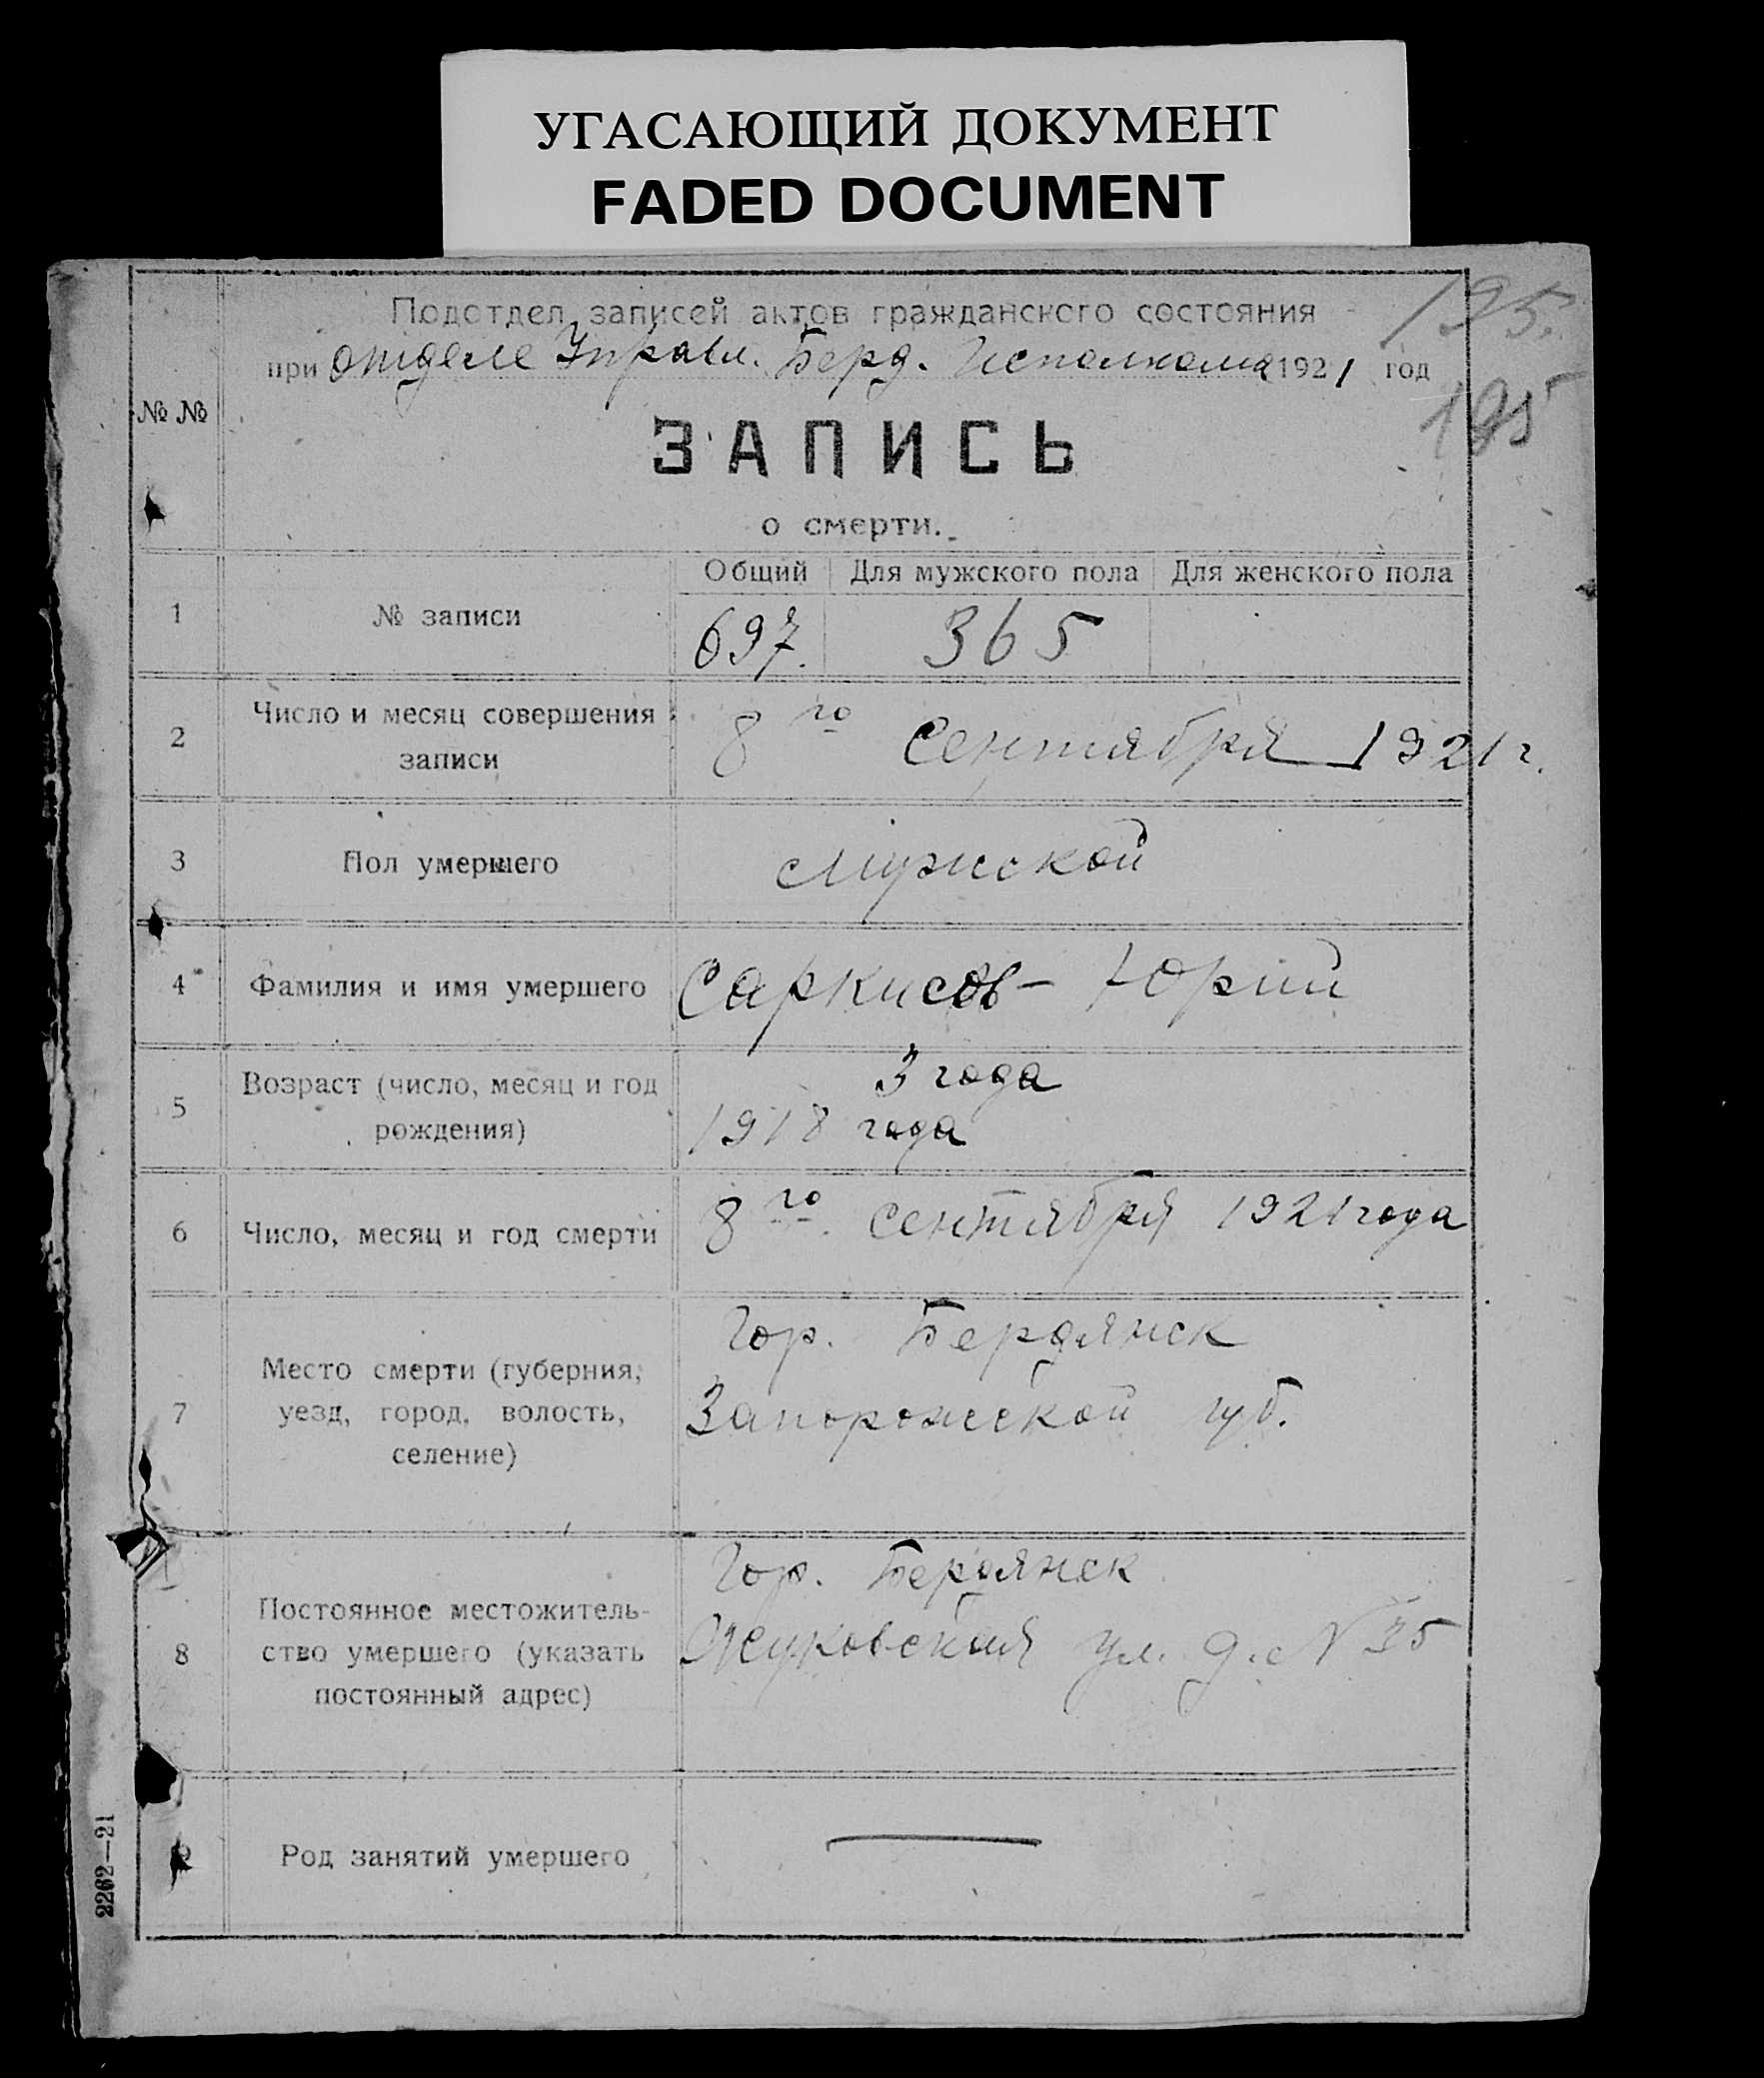 УГАСАЮЩИЙ ДОКУМЕНТ
FADED DOCUMENT
Подотдел записей актов гражданского состояния
при отделе Управл. Берд. Исполкома 1921 год
195.
195
№ №
ЗАПИСЬ
о смерти.
Общий Для мужского пола Для женского пола
1 № записи 697. 365
2 Число и месяц совершения
записи
8го Сентября 1921 г.
3 Пол умершего Мужской
4 Фамилия и имя умершего Саркисов - Юрий
5 Возраст (число, месяц и год
рождения)
3 года
1918 года
6 Число, месяц и год смерти 8го. Сентября 1921 года
7 Место смерти (губерния,
уезд, город, волость,
селение)
Гор. Бердянск
Запорожской губ.
8 Постоянное местожитель-
ство умершего (указать
постоянный адрес)
Гор. Бердянск
Жуковская ул. д. N 35
9 Род занятий умершего
2262—21